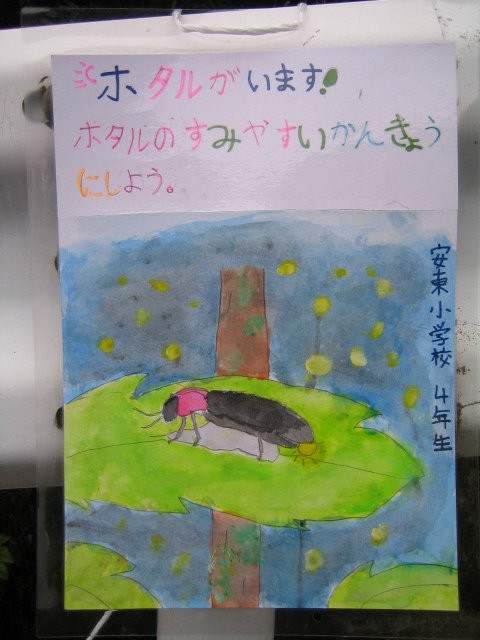 ホタルがいます!
ホタルのすみやすいかんきょう
にしよう。
安東小学校 4年生